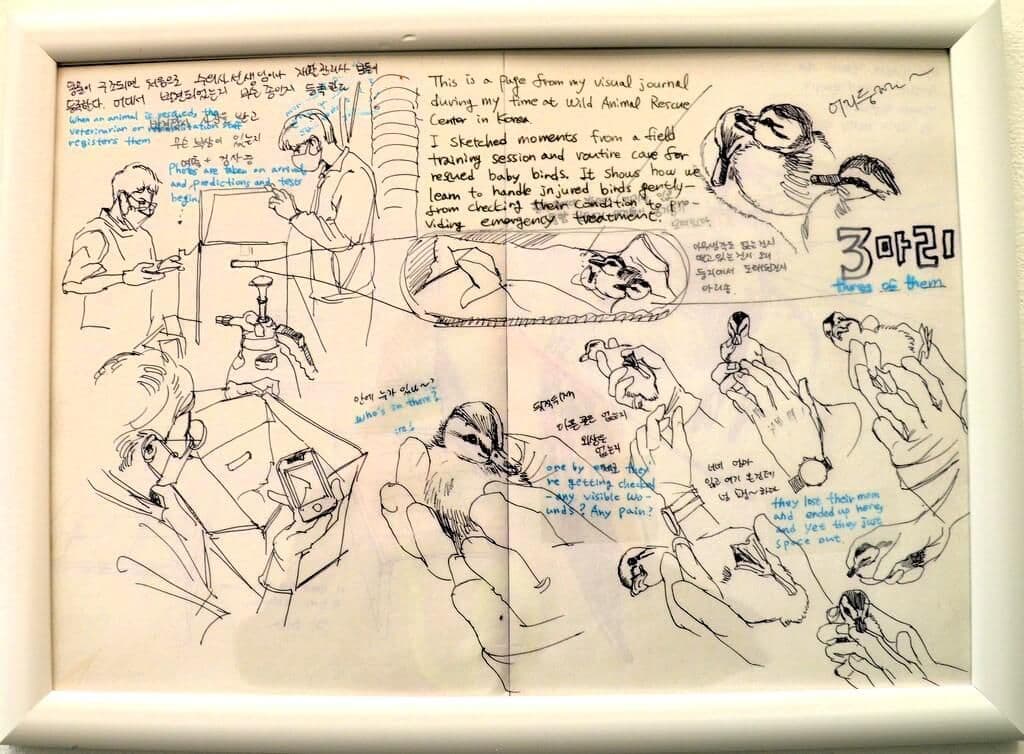 동물이 구조되면 처음으로 수의사 선생님이나 재활관리사 분들이
등록한다. 어디서 발견되었는지 무슨 종인지 등록하고
When an animal is rescued, the
veterinarian or rehabilitation staff
registers them
사진도 찍고
무슨 부상이 있는지
예측 + 검사 등
Photos are taken on arrival
and predictions and tests
begin.
This is a page from my visual journal
during my time at Wild Animal Rescue
Center in Korea.
I sketched moments from a field
training session and routine care for
rescued baby birds. It shows how we
learn to handle injured birds gently—
from checking their condition to pro-
viding emergency treatment.
어리둥
3마리
three of them
아무생각도 없는건지
떨고 있는건지 모려
둥지에서
안에 누가 있나~?
who's in there?
아픈 곳은 없는지
외상은
없는지
one by one they
're getting checked
- any visible wo-
unds? Any pain?
너네 엄마
잃고 여기 온건데
they lost their mom
and ended up here,
and yet they just
space out.